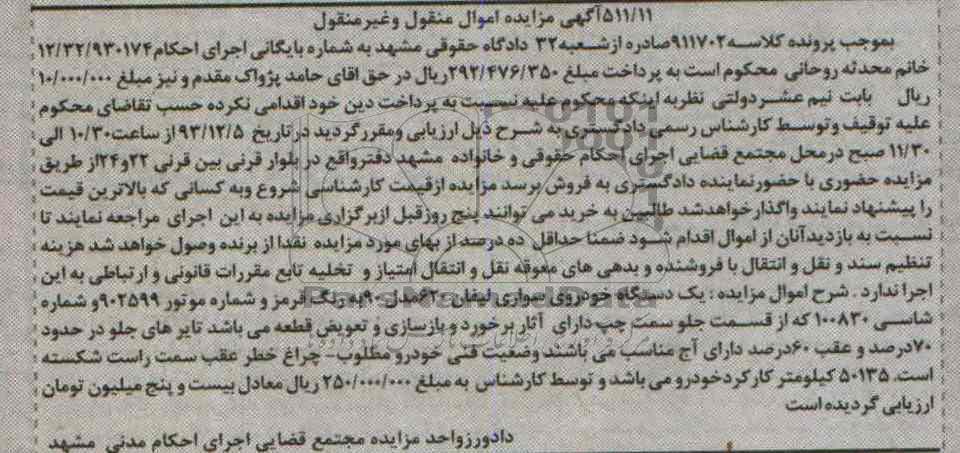 ۵۱۱/۱۱آگهی مزایده اموال منقول وغیرمنقول
بموجب پرونده کلاسه۹۱۱۷۰۲صادره ازشعبه۳۲ دادگاه حقوقی مشهد به شماره بایگانی اجرای احکام۱۲/۳۲/۹۳۰۱۷۴
خانم محدثه روحانی محکوم است به پرداخت مبلغ ۲۹۲/۴۷۶/۳۵۰ریال در حق اقای حامد پژواک مقدم و نیز مبلغ ۱۰/۰۰۰/۰۰۰
ریال بابت نیم عشردولتی نظربه اینکه محکوم علیه نسبت به پرداخت دین خود اقدامی نکرده حسب تقاضای محکوم
علیه توقیف وتوسط کارشناس رسمی دادگستری به شرح ذیل ارزیابی ومقررگردید درتاریخ ۹۳/۱۲/۵ از ساعت۱۰/۳۰ الی
۱۱/۳۰ صبح درمحل مجتمع قضایی اجرای احکام حقوقی و خانواده مشهد دفترواقع در بلوار قرنی بین قرنی ۲۲و۲۴از طریق
مزایده حضوری با حضورنماینده دادگستری به فروش برسد مزایده ازقیمت کارشناسی شروع وبه کسانی که بالاترین قیمت
را پیشنهاد نمایند واگذارخواهدشد طالبین به خرید می توانند پنج روزقبل ازبرگزاری مزایده به این اجرای مراجعه نمایند تا
نسبت به بازدیدآنان از اموال اقدام شود ضمنا حداقل ده درصد از بهای مورد مزایده نقدا از برنده وصول خواهد شد هزینه
تنظیم سند و نقل و انتقال با فروشنده و بدهی های معوقه نقل و انتقال امتیاز و تخلیه تابع مقررات قانونی و ارتباطی به این
اجرا ندارد . شرح اموال مزایده : یک دستگاه خودروی سواری لیفان ۶۲۰مدل ۹۰به رنگ قرمز و شماره موتور ۹۰۲۵۹۹و شماره
شاسی ۱۰۰۸۳۰ که از قسمت جلو سمت چپ دارای آثار برخورد و بازسازی و تعویض قطعه می باشد تایر های جلو در حدود
۷۰درصد و عقب ۶۰درصد دارای آج مناسب می باشند وضعیت فنی خودرو مطلوب- چراغ خطر عقب سمت راست شکسته
است. ۵۰۱۳۵ کیلومتر کارکردخودرو می باشد و توسط کارشناس به مبلغ ۲۵۰/۰۰۰/۰۰۰ ریال معادل بیست و پنج میلیون تومان
ارزیابی گردیده است
دادورزواحد مزایده مجتمع قضایی اجرای احکام مدنی مشهد